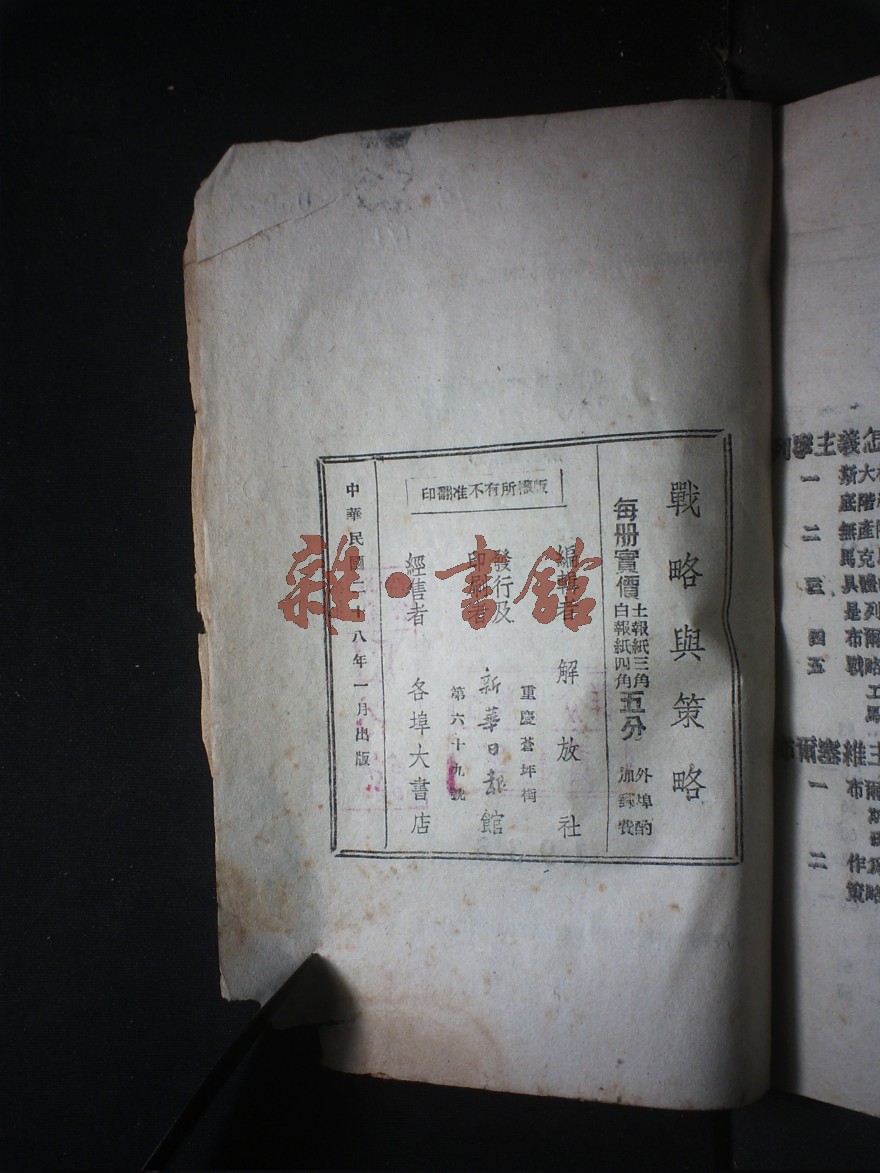 戰略與策略
每册實價 土報紙三角 白報紙四角 五分
外埠酌
加郵費
版權所有不准翻印
編輯者 解放社
發行及
印刷者 新華日報館
重慶蒼坪街
第六十九號
經售者 各埠大書店
中華民國二十八年一月出版
雜·書館
列寧主義怎
一 斯大林
底階
二 無產階
馬克
三 具體
是列
四 布爾
五 戰略
工
馬
主維塞爾布
一 布爾
斯
二 作為
策略